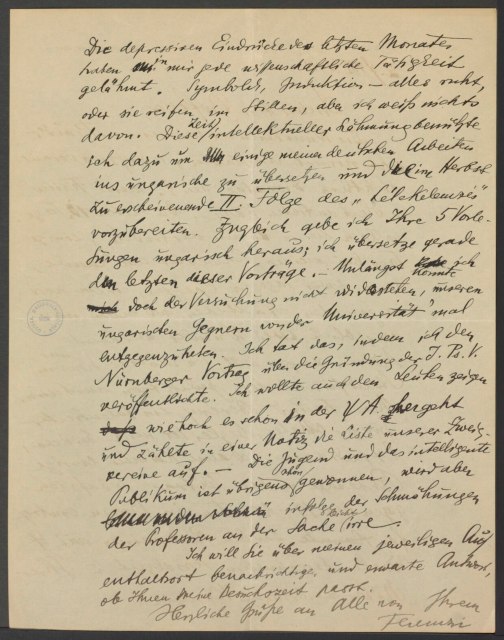 Die depressiven Eindrücke des letzten Monates
haben in mir jede wissenschaftliche Tätigkeit
gelähmt. Symbolik, Induktion – alles ruht,
oder sie reifen im Stillen, aber ich weiß nichts
davon. Diese Zeit intellektueller Lähmung benützte
ich dazu um einige meiner deutschen Arbeiten
ins ungarische zu übersetzen und die im Herbst
zu erscheinende II. Folge des „Lélekelemzés"
vorzubereiten. Zugleich gebe ich Ihre 5 Vorle-
sungen ungarisch heraus; ich übersetze gerade
den letzten dieser Vorträge. – Unlängst konnte ich
doch der Versuchung nicht widerstehen, unseren
ungarischen Gegnern von der Universität 'mal
entgegenzutreten. Ich tat das, indem ich den
Nürnberger Vortrag über die Gründung der I. Ps. V.
veröffentlichte. Ich wollte auch den Leuten zeigen
wie hoch es schon in der ΨA hergeht
und zählte in einer Notiz die Liste unserer Zweig-
vereine auf. – Die Jugend und das intelligente
Publikum ist übrigens schon gewonnen, wird aber
infolge der Schmähungen
der Professoren an der Sache irre.
Ich will Sie über meinen jeweiligen Auf-
enthaltsort benachrichtigen und erwarte Antwort,
ob Ihnen meine Besuchszeit passt.
Herzliche Grüße an Alle von Ihrem
Ferenczi